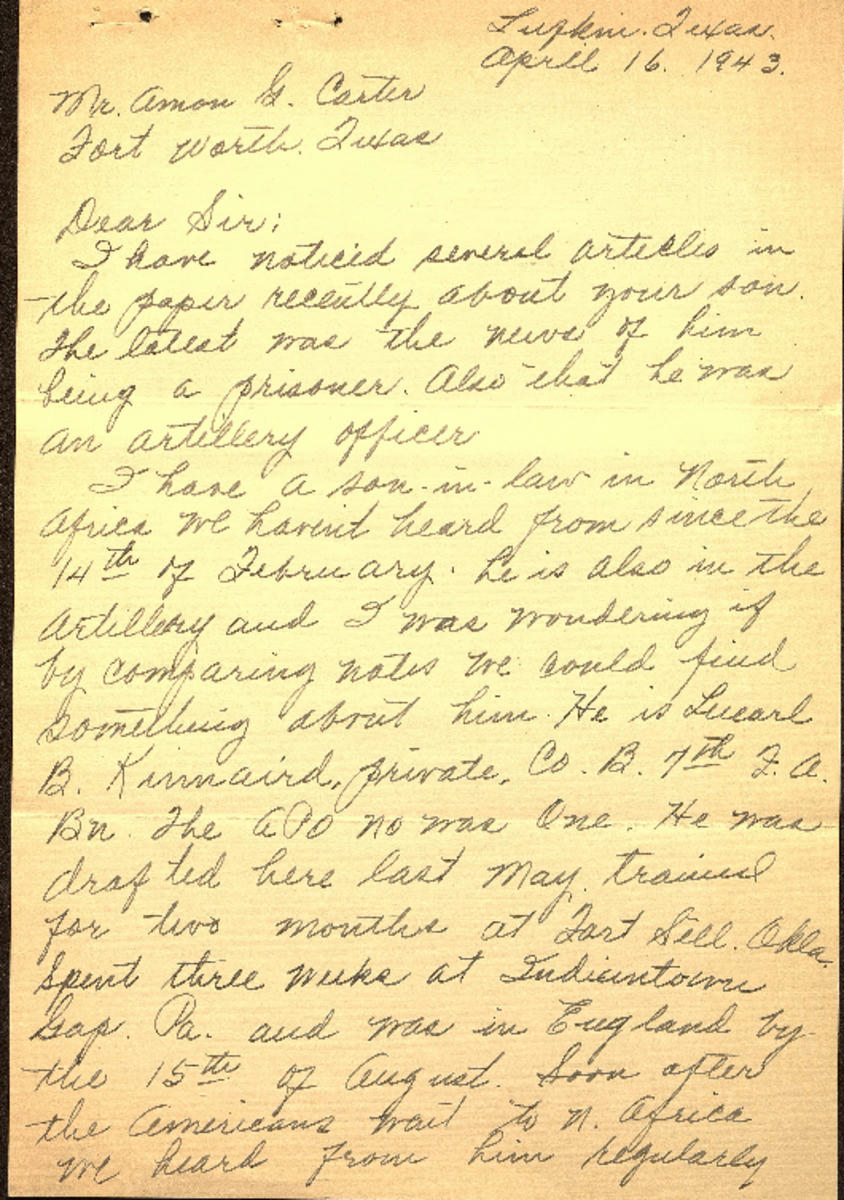 Lufkin. Texas.
April 16. 1943.
Mr. Amon G. Carter
Fort Worth. Texas
Dear Sir;
I have noticed several articles in
the paper recently about your son.
The latest was the news of him
being a prisoner. Also that he was
an artillery officer
I have a son-in-law in North
Africa we havent heard from since the
14th of February. he is also in the
Artillery and I was wondering if
by comparing notes we could find
something about him. He is Lucarl
B. Kinnaird, private, Co. B. 7th F. A.
Bn. The APO no was One. He was
drafted here last May. trained
for two months at Fort Sill. Okla.
Spent three weeks at Indiantown
Gap. Pa. and was in England by
the 15th of August. Soon after
the Americans went to N. Africa
we heard from him regularly